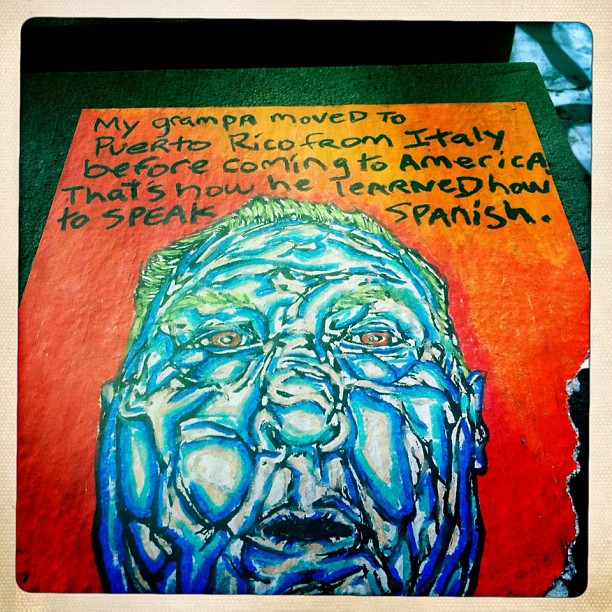 My grampa moved to
Puerto Rico from Italy
before coming to America.
That's how he learned how
to speak Spanish.